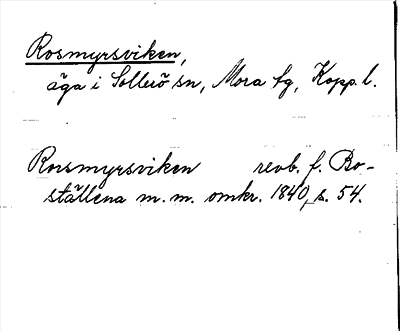 Rosmyrsviken,
äga i Sollerö sn, Mora tg, Kopp. l.
Rosmyrsviken revb. f. Bo-
ställena m. m. omkr. 1840, s. 54.